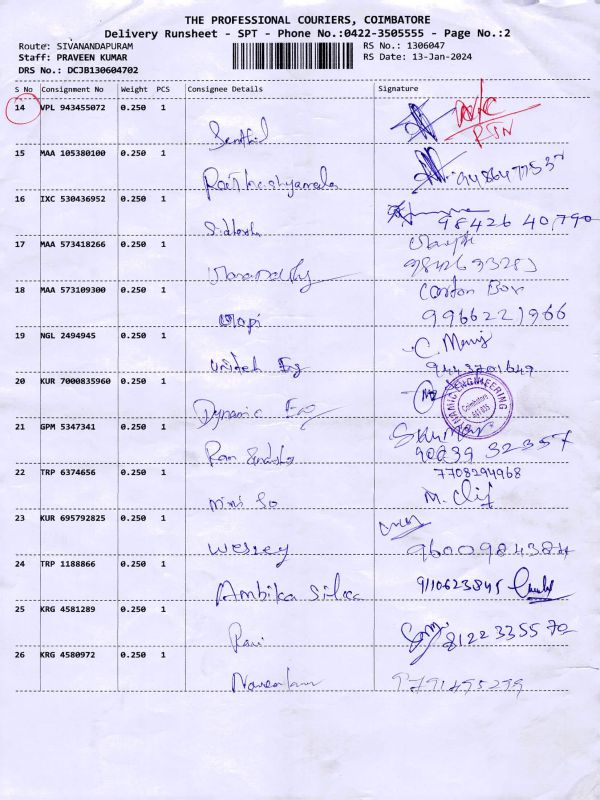 THE PROFESSIONAL COURIERS, COIMBATORE
Delivery Runsheet - SPT - Phone No.:0422-3505555 - Page No.:2
Route: SIVANANDAPURAM RS No.: 1306047
Staff: PRAVEEN KUMAR RS Date: 13-Jan-2024
DRS No.: DCJB130604702
S No Consignment No Weight PCS Consignee Details Signature
14 VPL 943455072 0.250 1
Senthil
15 MAA 105380100 0.250 1
16 IXC 530436952 0.250 1
98426 40,790
17 MAA 573418266 0.250 1
18 MAA 573109300 0.250 1 Carton Box
Gopi 9966221966
19 NGL 2494945 0.250 1
Unitech Eg 9443701649
20 KUR 7000835960 0.250 1
Dynamic Eg DYNAMIC ENGINEERING Coimbatore
21 GPM 5347341 0.250 1 S Kumar
90039 32357
22 TRP 6374656 0.250 1 7708294968
M. Clif
23 KUR 695792825 0.250 1
Wesley 9600984384
24 TRP 1188866 0.250 1
Ambika Silks 9110623845
25 KRG 4581289 0.250 1
Ravi 81223355 70
26 KRG 4580972 0.250 1